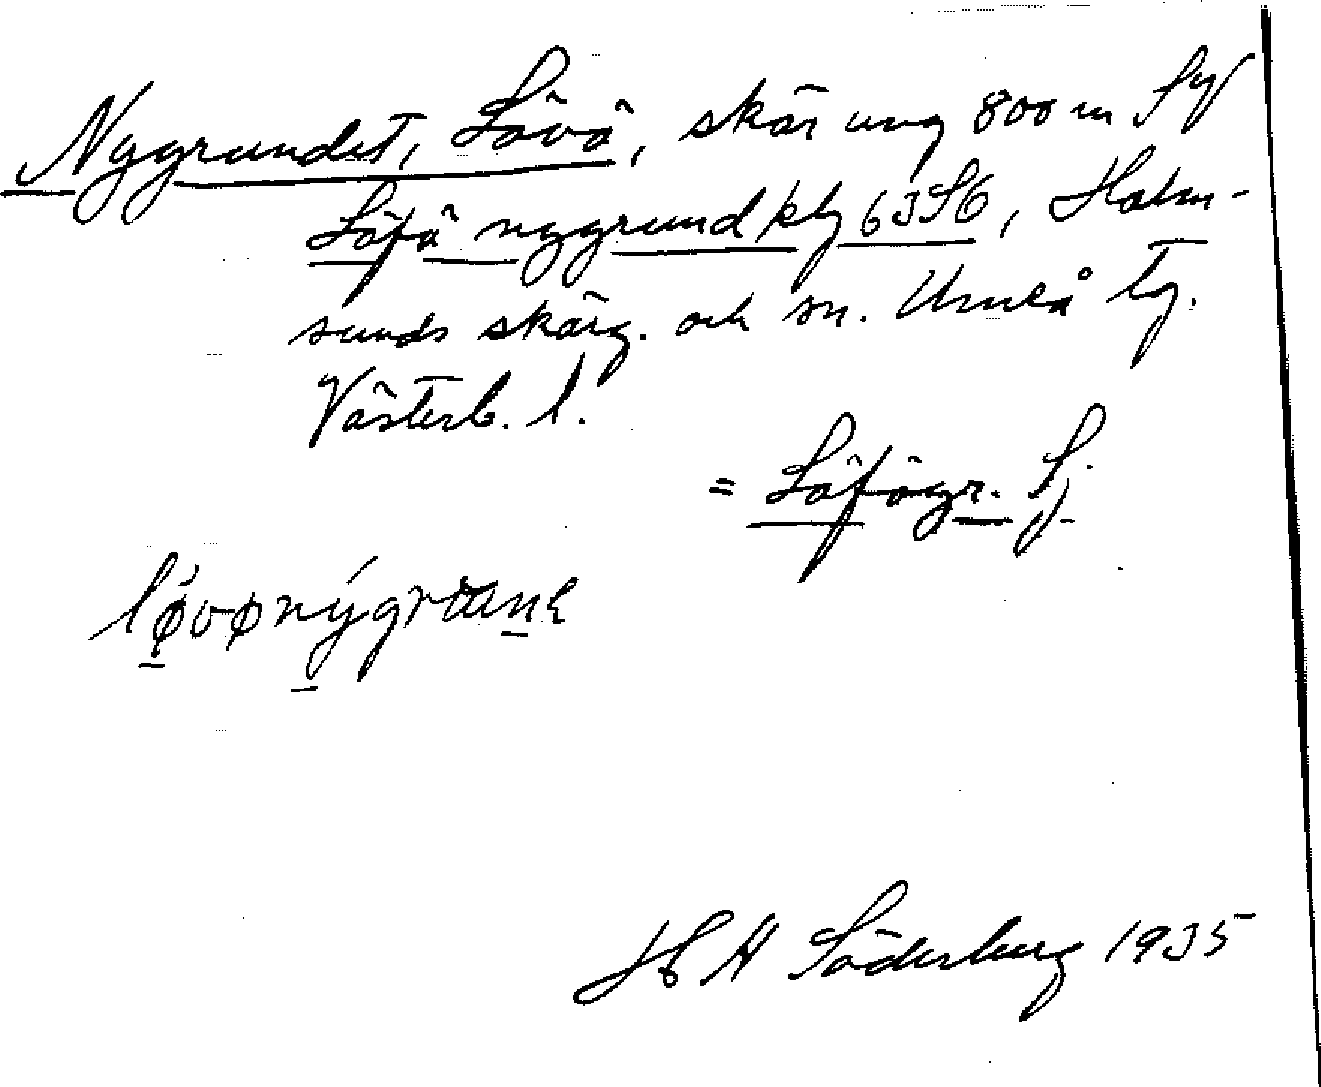 Nygrundet, Lövö, skär ung 800 m SV
Löfö nygrund kbl 63S6, Holm-
sunds skärg. och sn. Umeå tg.
Västerb. l.
= Löfögr. Sj.
lǿvønýgrɯnᶇ
H Söderberg 1935